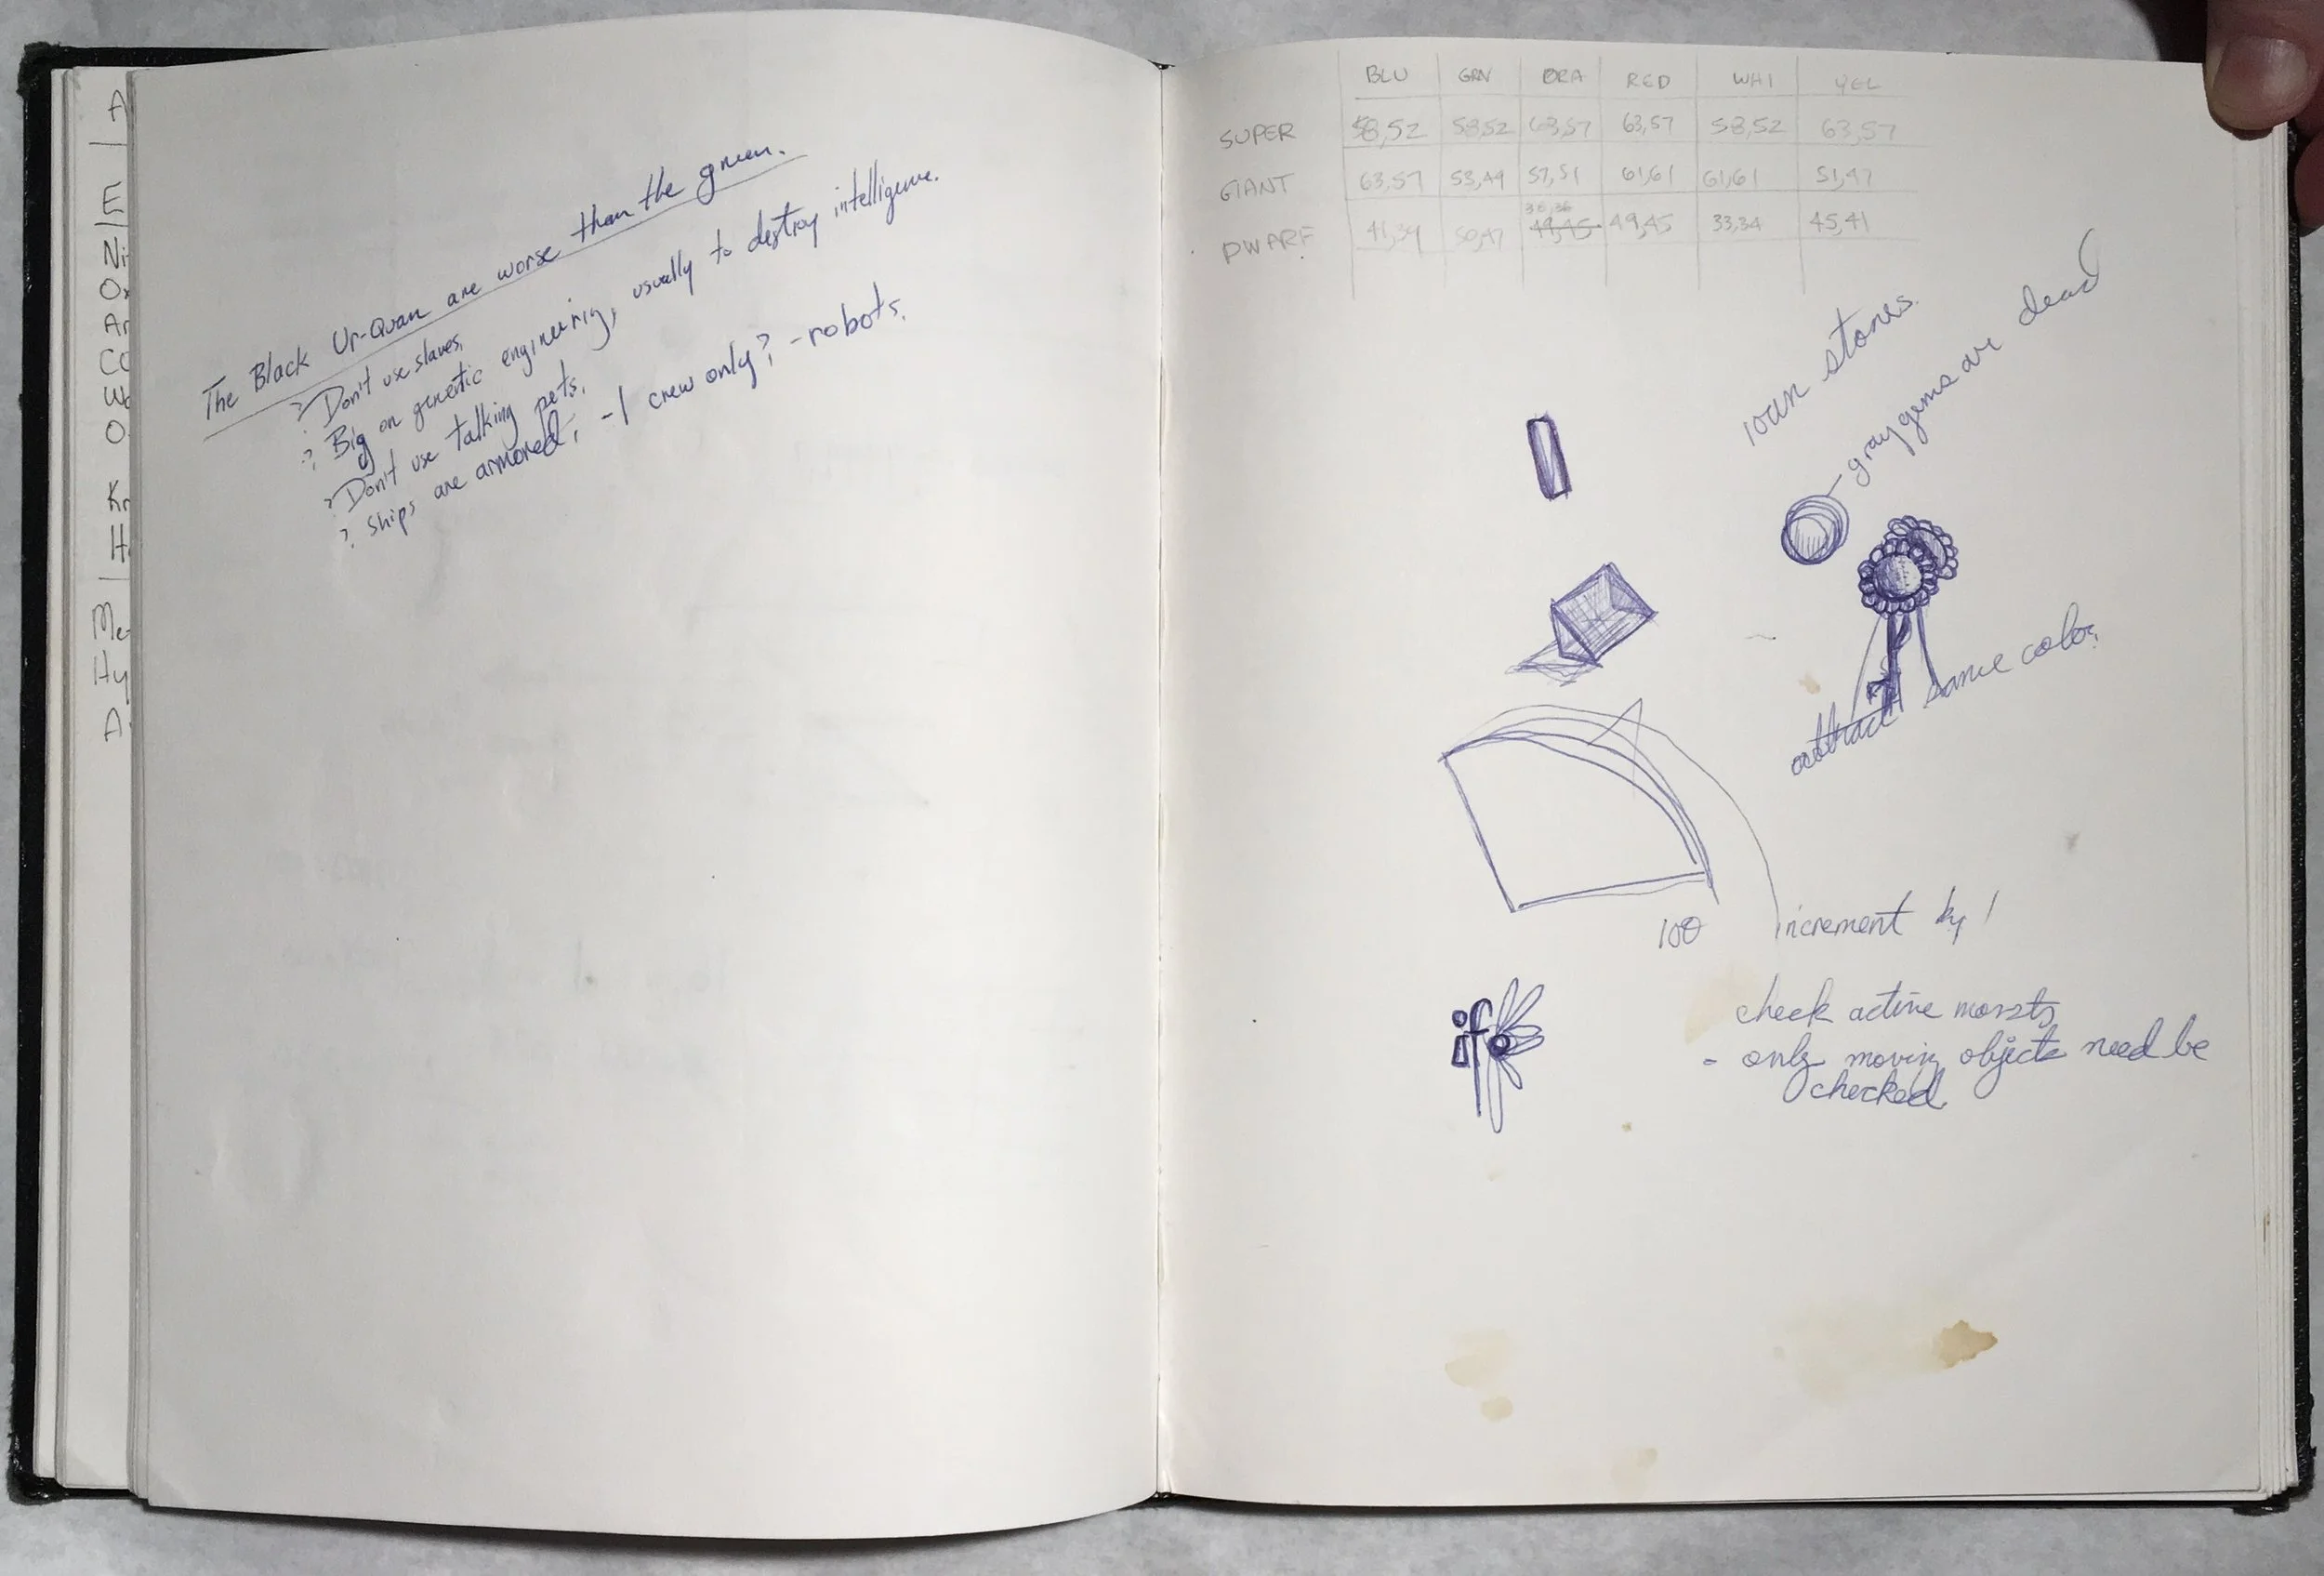 A
E
Ni
Ox
Ar
CO
Wa
O
Kr
He
Me
Hy
A
The Black Ur-Quan are worse than the green.
? Don't use slaves.
? Big on genetic engineering, usually to destroy intelligence.
? Don't use talking pets.
? Ships are armored, -1 crew only? - robots.
BLU GRN ORA RED WHI YEL
SUPER 58,52 58,52 63,57 63,57 58,52 63,57
GIANT 63,57 53,49 57,51 61,61 61,61 51,47
36,36
DWARF 41,39 50,47 49,45 49,45 33,34 45,41
ioun stones.
- gray gems are dead
same color.
100 increment by 1
if
check active
- only moving objects need be
checked